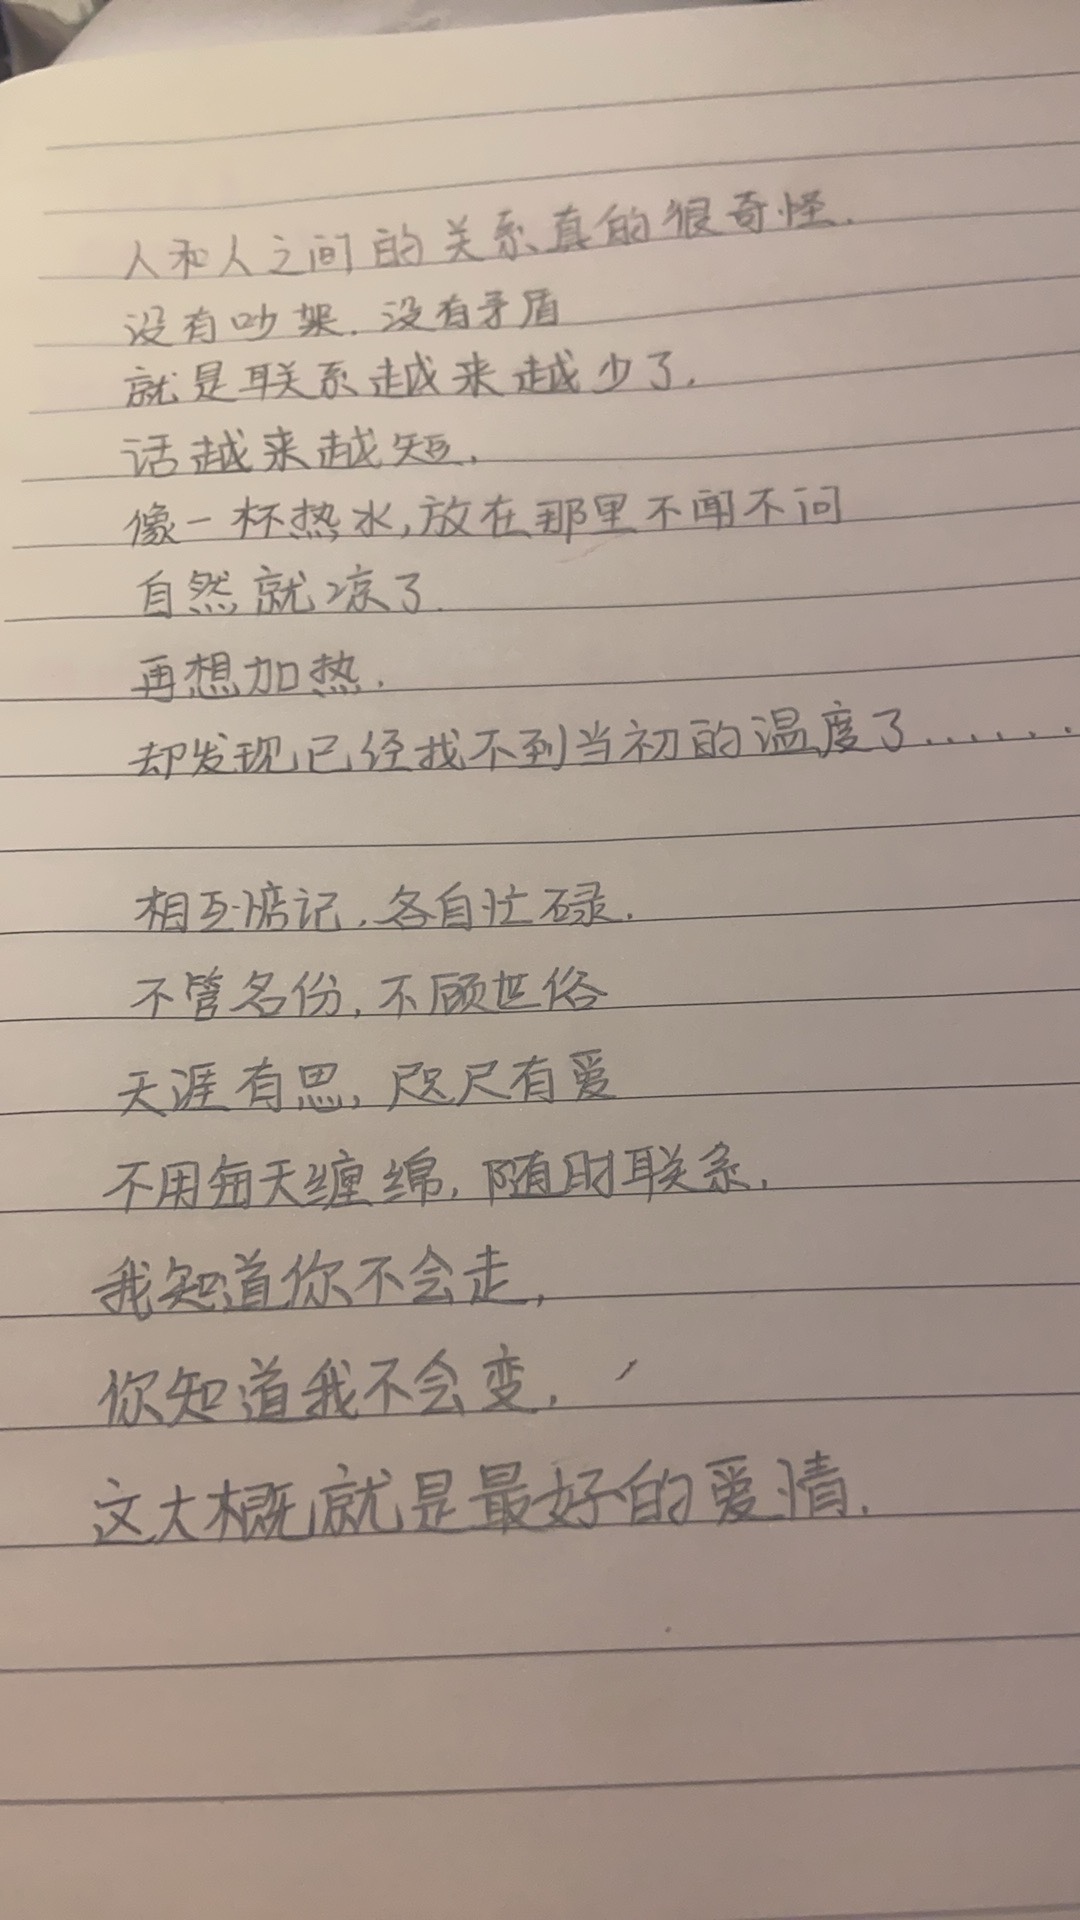 人和人之间的关系真的很奇怪.
没有吵架.没有矛盾
就是联系越来越少了.
话越来越短.
像一杯热水,放在那里不闻不问
自然就凉了.
再想加热.
却发现已经找不到当初的温度了......
相互惦记.各自忙碌.
不管名份,不顾世俗
天涯有思,咫尺有爱
不用每天缠绵,随时联系.
我知道你不会走,
你知道我不会变.
这大概就是最好的爱情.